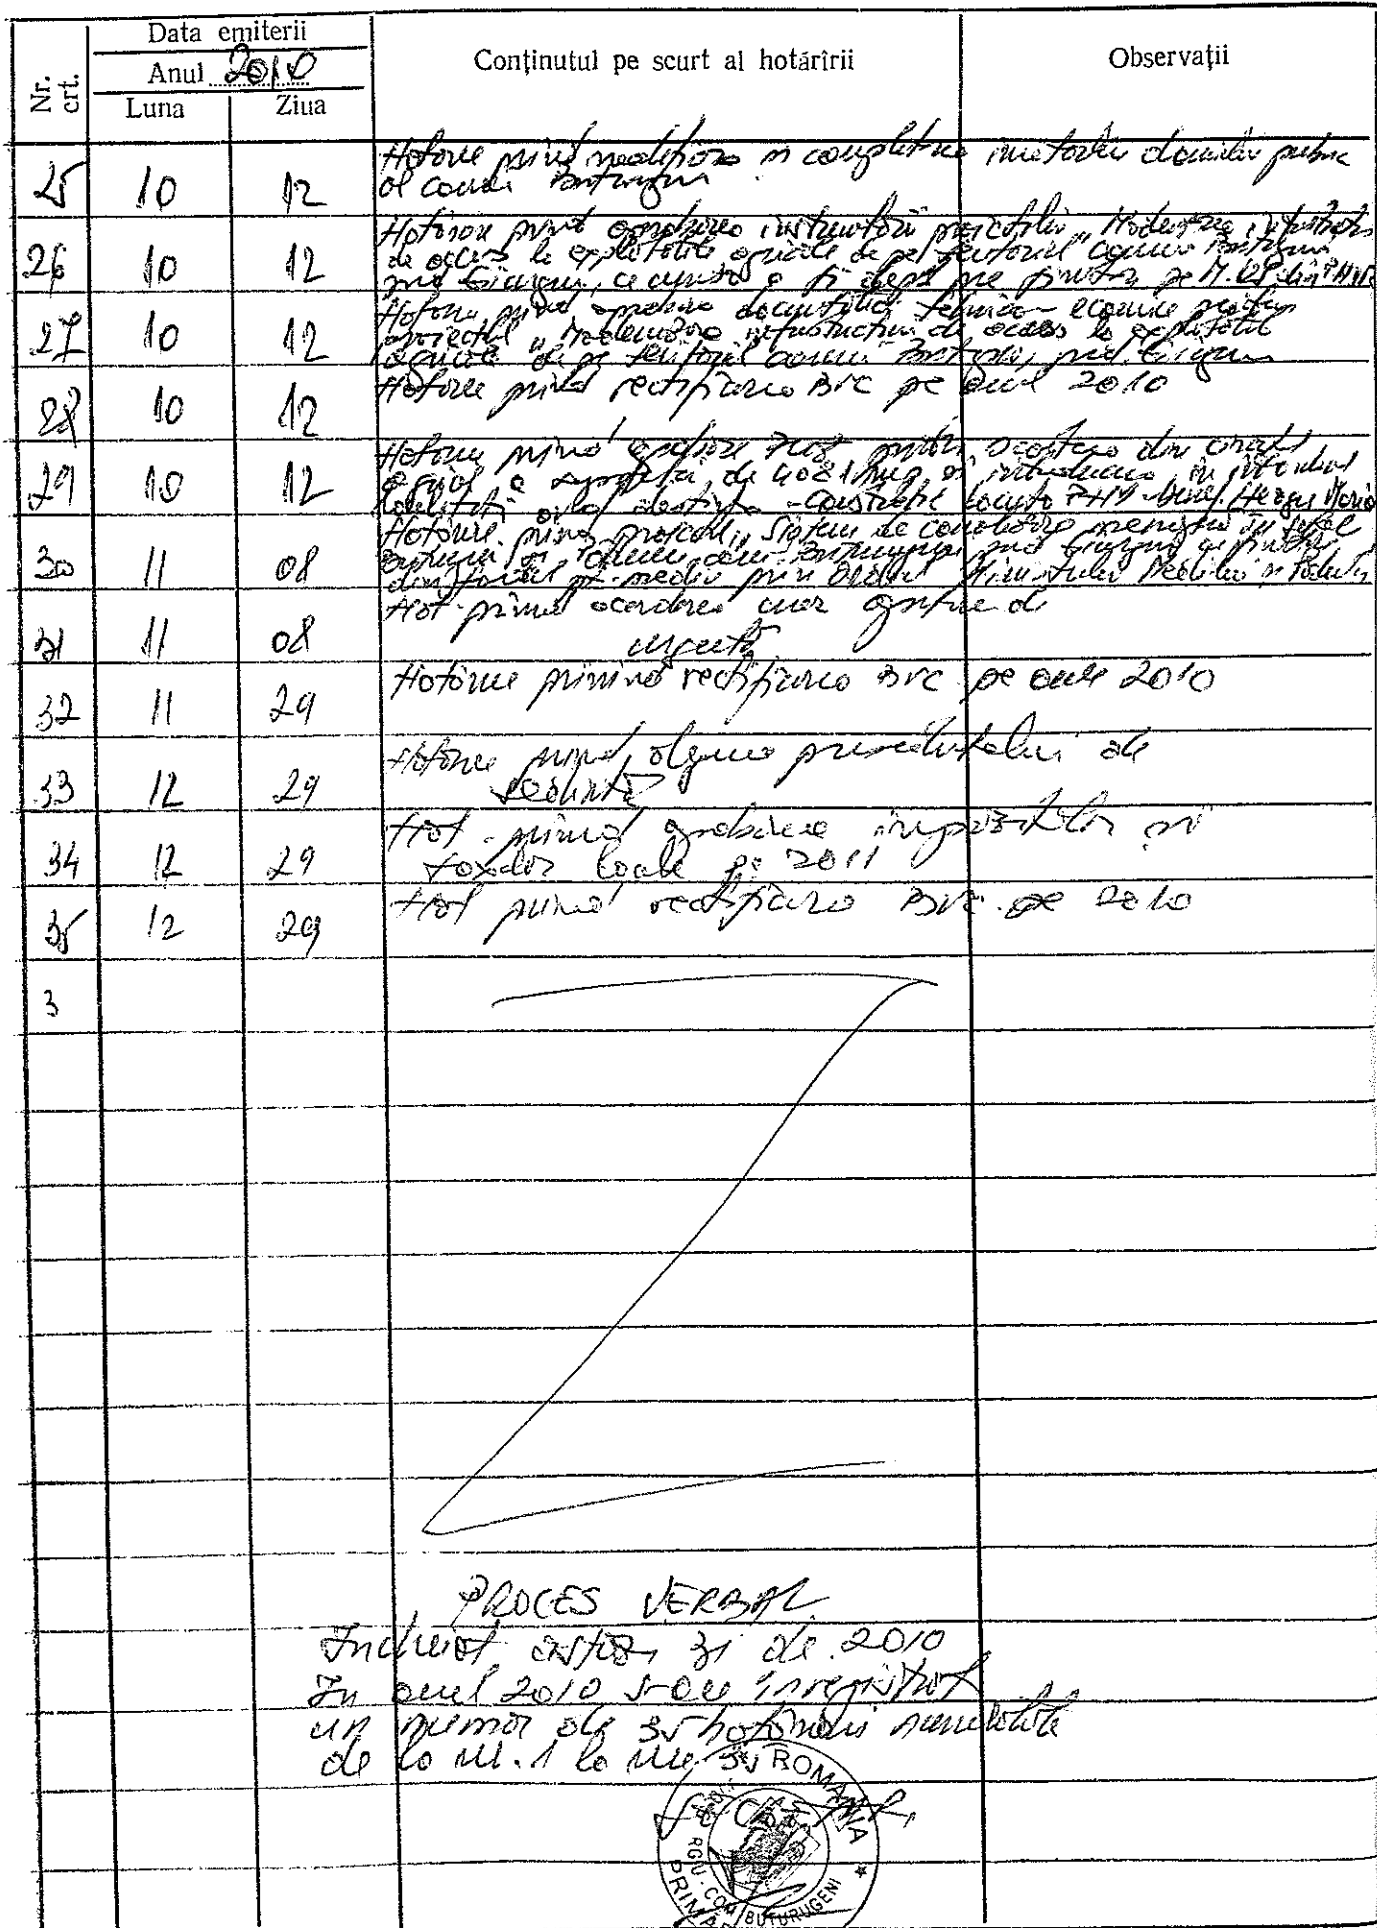 Nr. crt.
Data emiterii
Anul 2010
Luna
Ziua
Conținutul pe scurt al hotărîrii
Observații
25 10 12 Hotărîre privind modificarea și completarea inventarului domeniului public
al comunei Buturugeni
26 10 12 Hotărîre privind aprobarea proiectului „Modernizarea
de acces la exploatatiile agricole de pe teritoriul comunei Buturugeni
jud Giurgiu, ce urmează a fi depus pre finantare pe M. 125 din PNDR
27 10 12 Hotărîre privind aprobarea documentatiei tehnico-economice
proiectul „Modernizarea infrastructurii de acces la exploatatiile
agricole de pe teritoriul comunei Buturugeni, jud. Giurgiu
28 10 12 Hotărîre privind rectificarea BVC pe anul 2010
29 10 12 Hotărîre privind aprobare PUZ pentru scoatere din circuitul
agricol a suprafetei de mp si introducerea in intravilanul
localității cu destinatia - Constructie locuinta P+M - Maria
30 11 08 Hotărîre privind proiectul „Sistem de canalizare menajera in satele
Buturugeni si com. Buturugeni jud Giurgiu
din fondul pt. mediu prin Ordinul Ministrului Mediului si Padurilor
31 11 08 Hot. privind acordarea unor ajutoare de
urgență
32 11 29 Hotărîre privind rectificarea BVC pe anul 2010
33 12 29 Hotărîre privind alegerea presedintelui de
sedință
34 12 29 Hot. privind aprobarea impozitelor si
taxelor locale pe 2011
35 12 29 Hot privind rectificarea BVC pe 2010
3
PROCES VERBAL
Incheiat astazi 31 de 2010
In anul 2010 s-au inregistrat
un numar de 35 hotărîri numerotate
de la nr. 1 la nr. 35
ROMANIA
COM BUTURUGENI